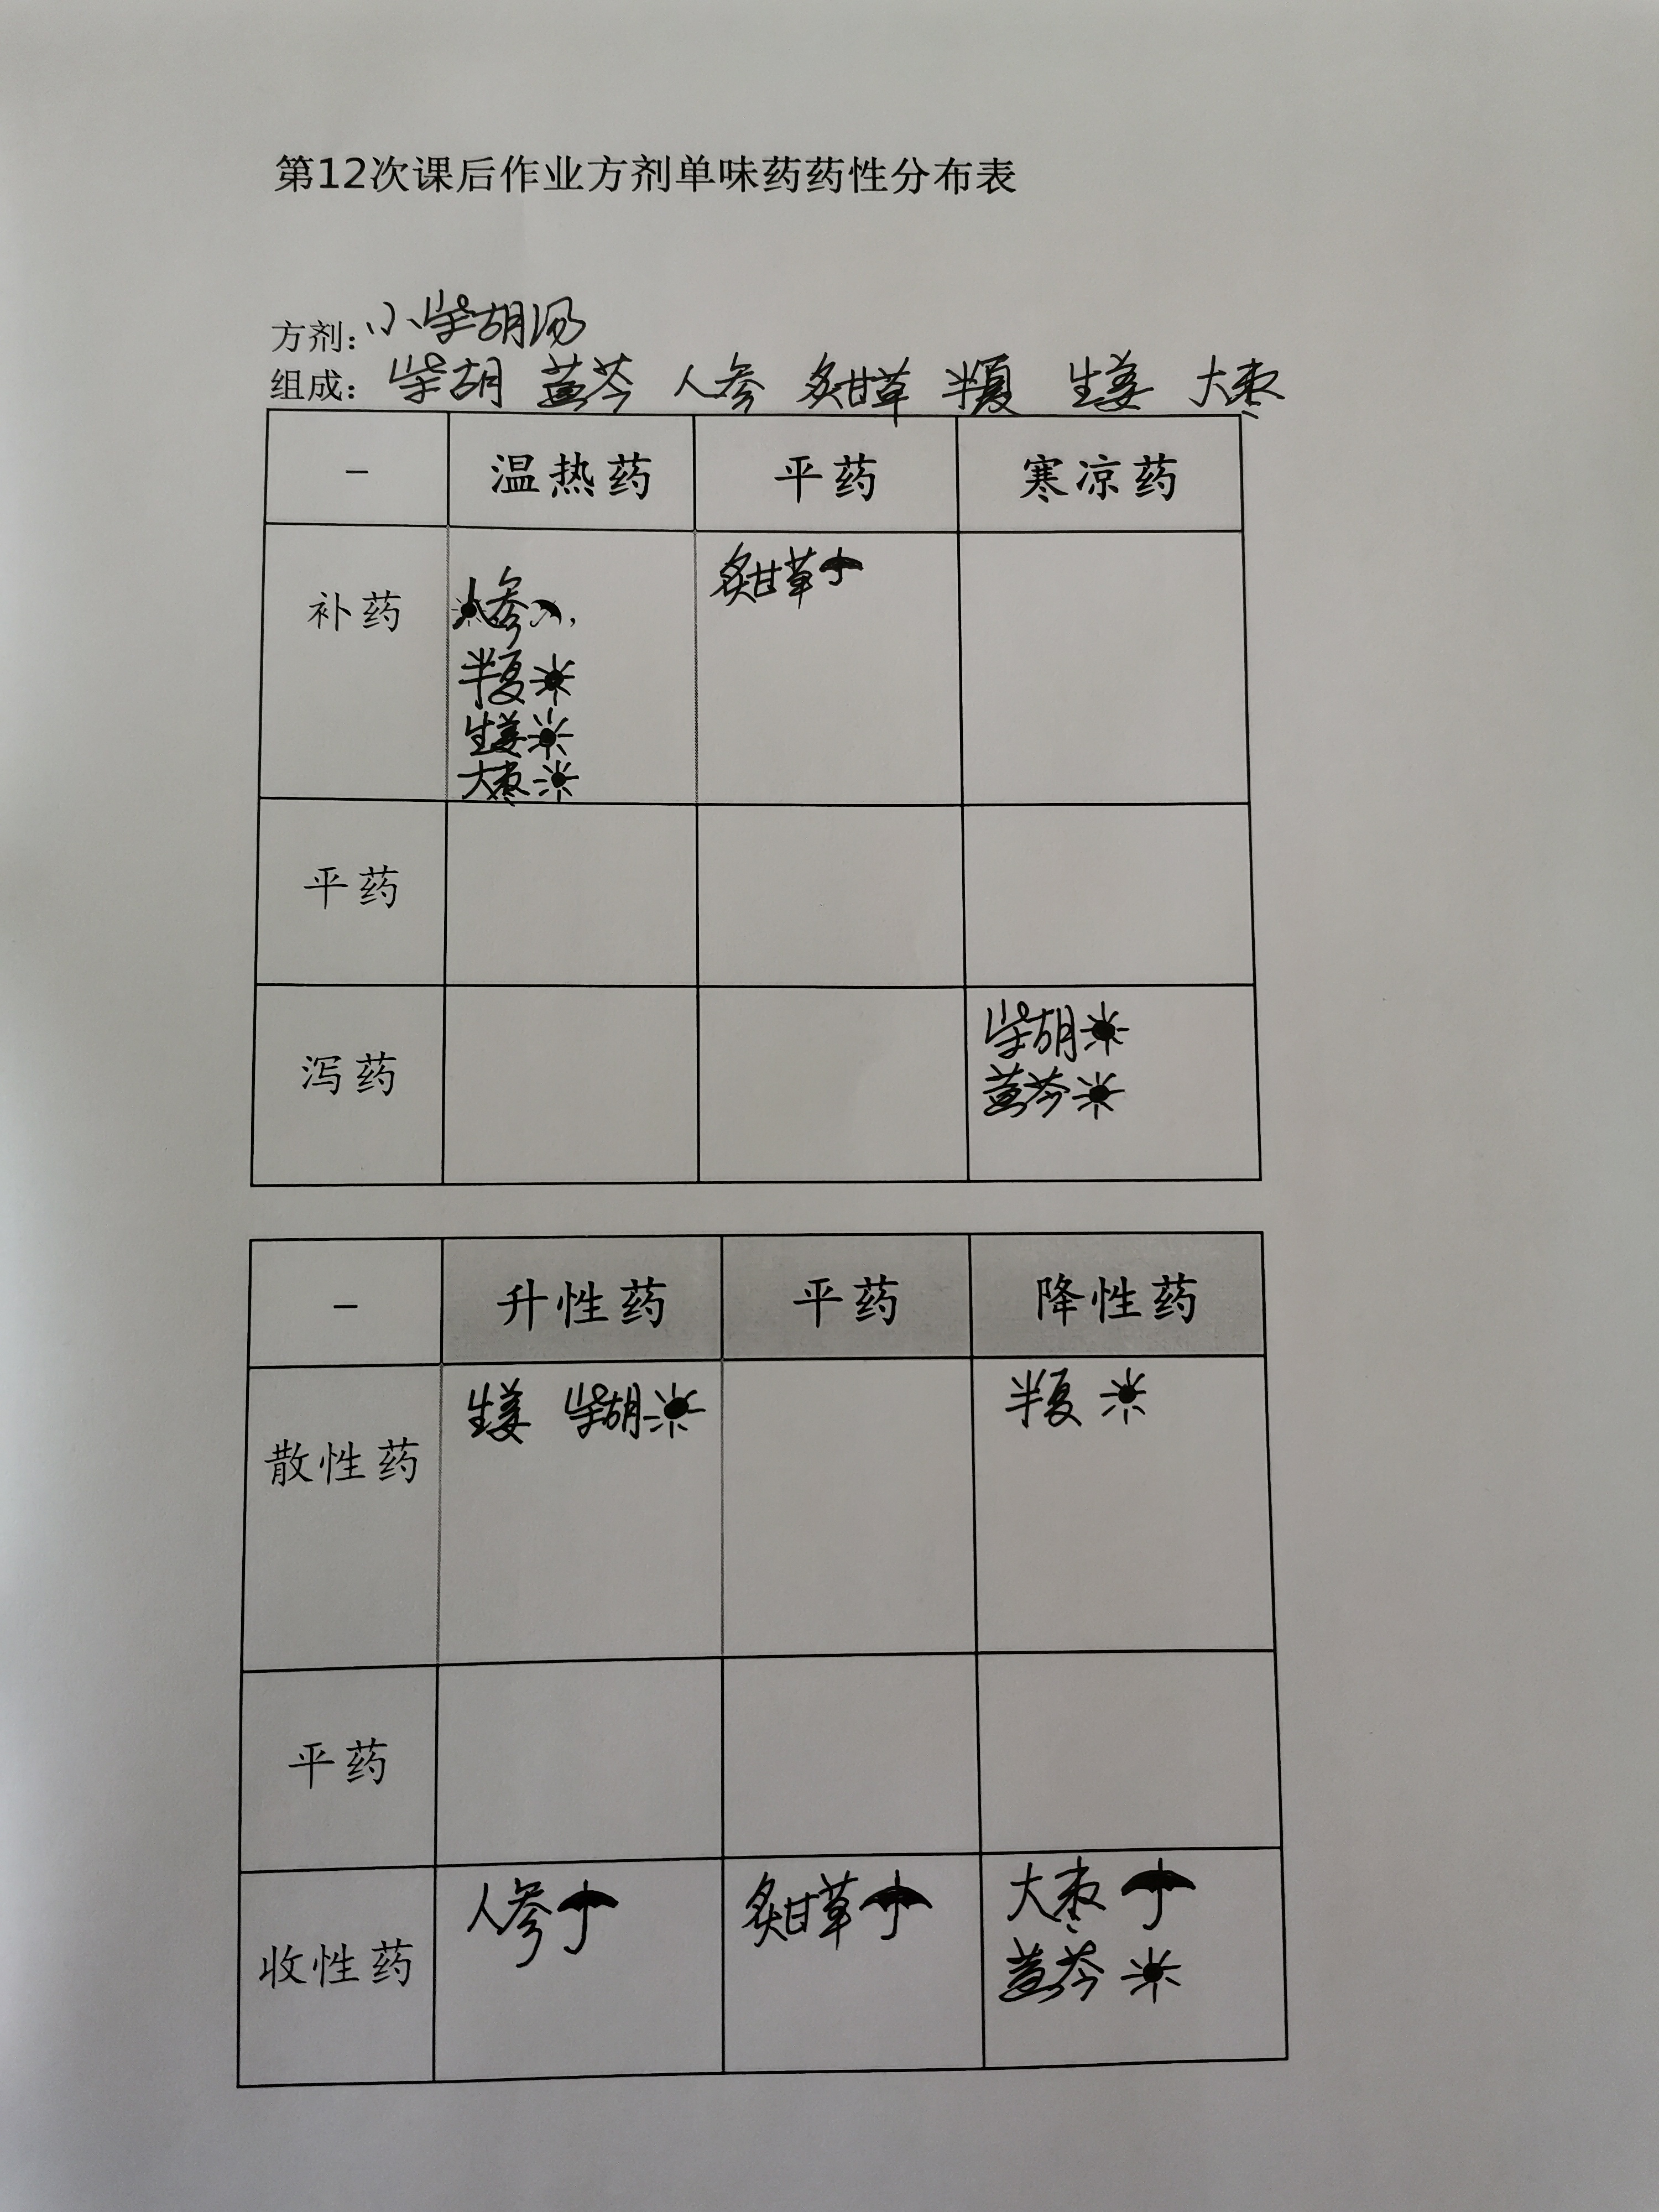 第12次课后作业方剂单味药药性分布表
方剂:小柴胡汤
组成: 柴胡 黄芩 人参 炙甘草 半夏 生姜 大枣
– 温热药 平药 寒凉药
补药 人参, 炙甘草
半夏
生姜
大枣
平药
泻药 柴胡
黄芩
– 升性药 平药 降性药
散性药 生姜 柴胡 半夏
平药
收性药 人参 炙甘草 大枣
黄芩